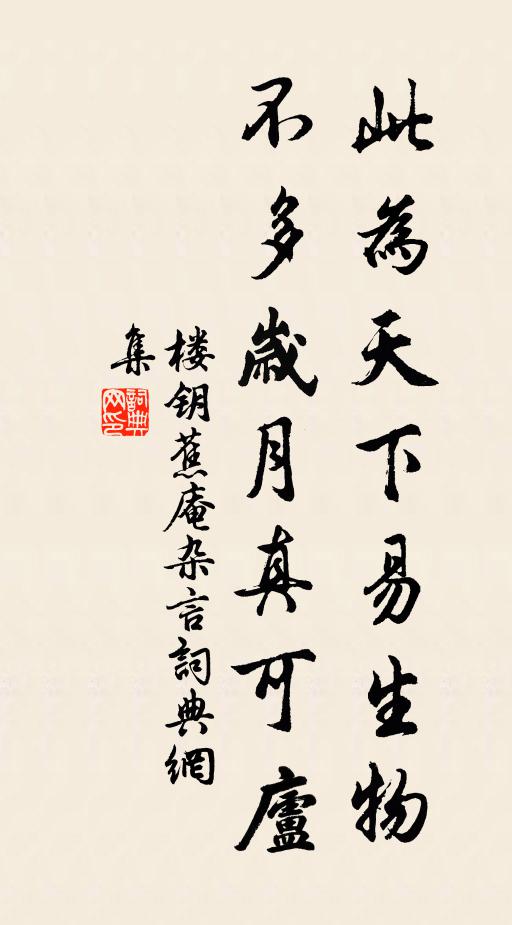 此為天下易生物
不多歲月真可廬
楼钥蕉庵杂言詞典網
集
詞典网印